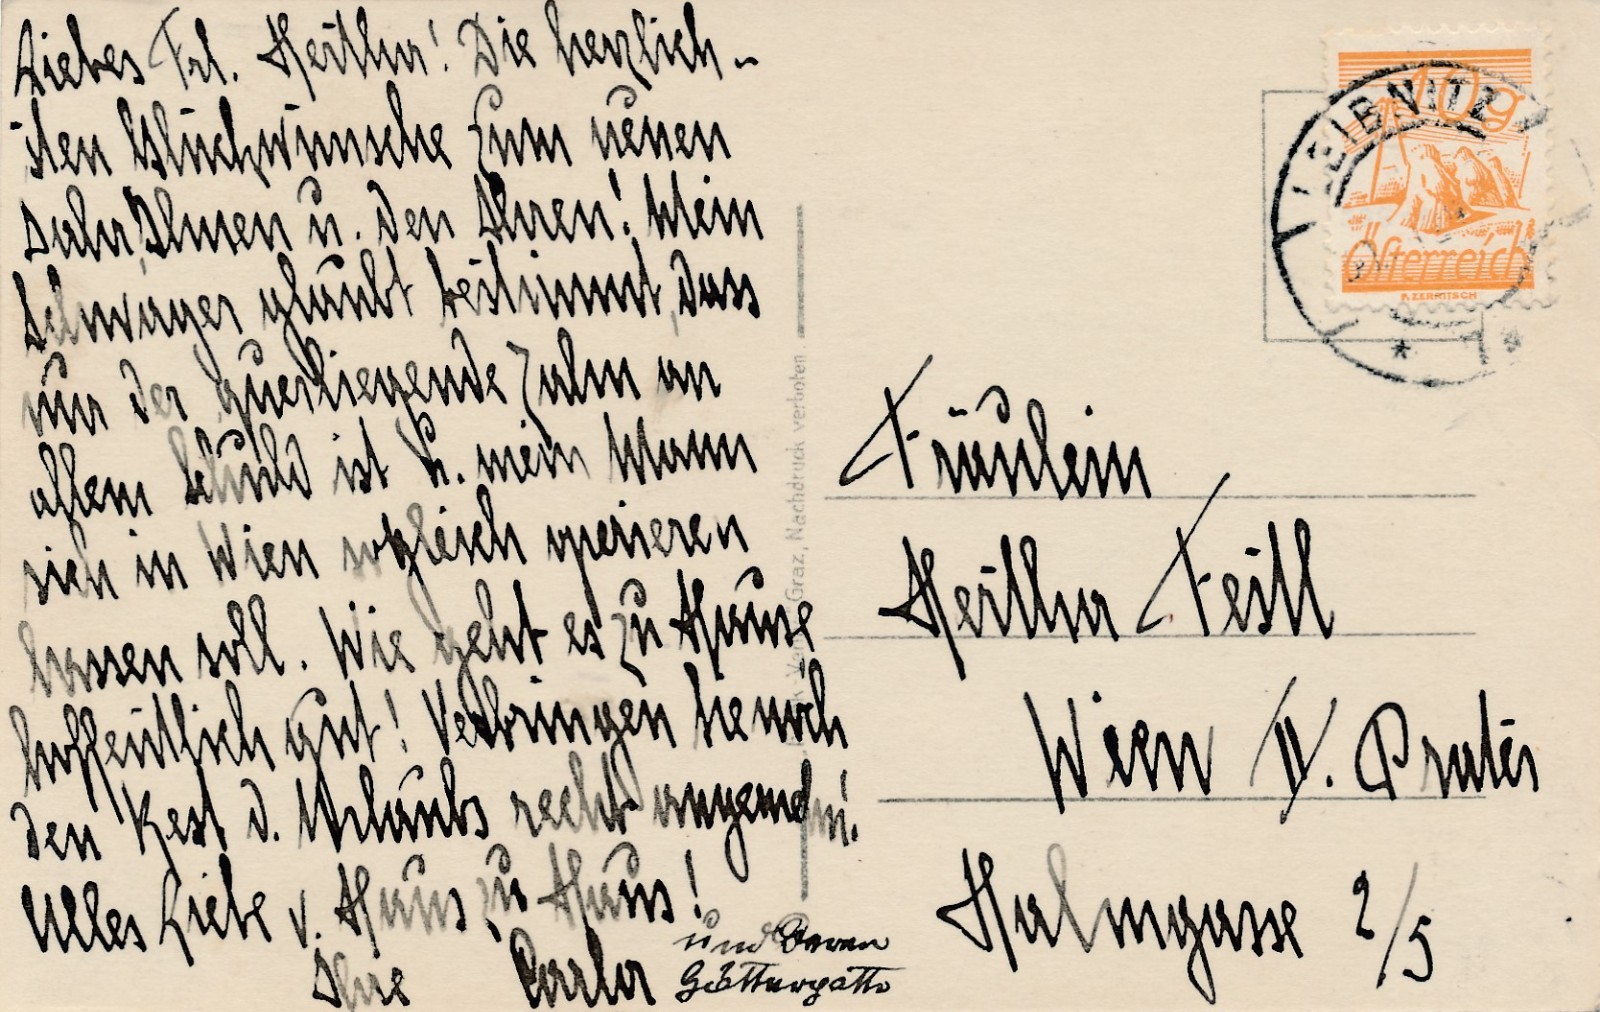 Liebes Frl. Hertha! Die herzlich-
sten Glückwünsche zum neuen
Jahr, Ihnen u. den Ihren! Mein
Schwager glaubt bestimmt, dass
nur der querliegende Zahn an
allem Schuld ist u. mein Mann
sich in Wien sogleich operieren
lassen soll. Wie geht es zu Hause
hoffentlich gut! Verbringen Sie noch
den Rest d. Urlaubs recht angenehm!
Alles Liebe v. Haus zu Haus!
Ihre Carla
und deren
Göttergatte
Graz, Nachdruck verboten.
LEIBNITZ
10g
Österreich
P. ZERRITSCH
Fräulein
Hertha Feitl
Wien II. Prater
Halmgasse 2/5